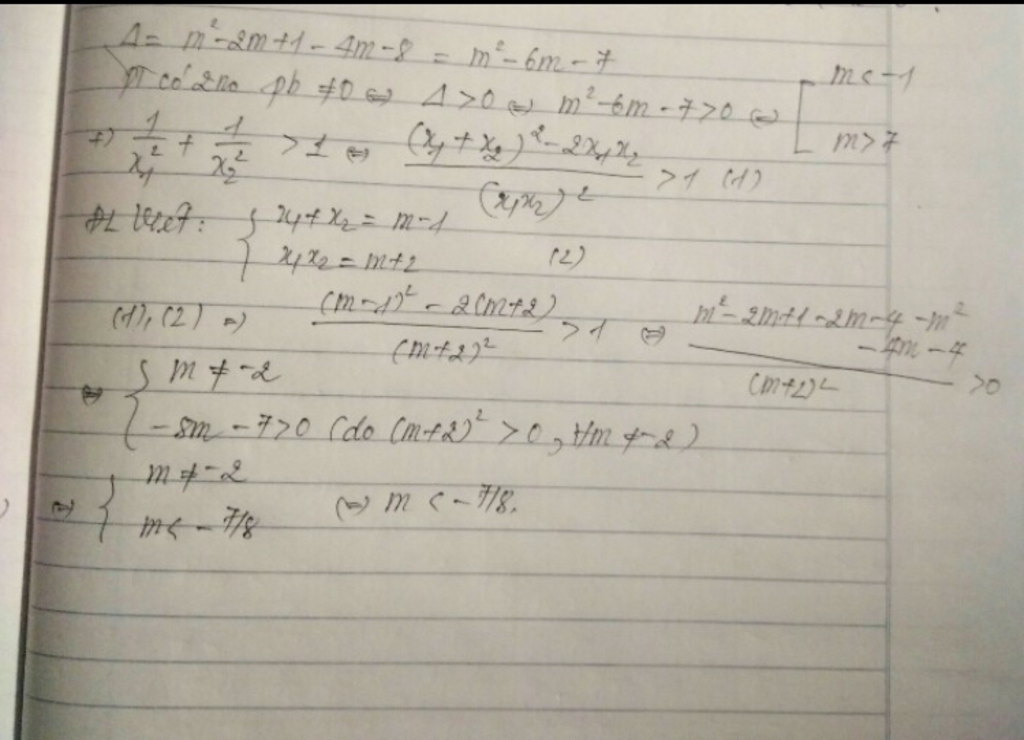 Δ = m² - 2m + 1 - 4m - 8 = m² - 6m - 7
PT có 2 no pb ≠ 0 ⇔ Δ > 0 ⇔ m² - 6m - 7 > 0 ⇔ [ m < -1
m > 7
+) 1/x₁² + 1/x₂² > 1 ⇔ ((x₁ + x₂)² - 2x₁x₂)/(x₁x₂)² > 1 (1)
ĐL Viet: { x₁ + x₂ = m - 1
x₁x₂ = m + 2 (2)
(1), (2) ⇒ ((m - 1)² - 2(m + 2))/(m + 2)² > 1 ⇔ (m² - 2m + 1 - 2m - 4 - m² - 4m - 4)/(m + 2)² > 0
⇔ { m ≠ -2
-8m - 7 > 0 (do (m + 2)² > 0, ∀m ≠ -2)
⇔ { m ≠ -2
m < -7/8 ⇔ m < -7/8.